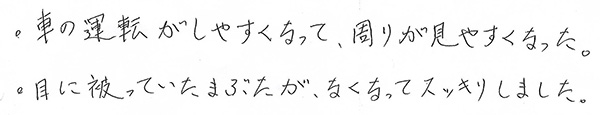 。車の運転がしやすくなって、周りが見やすくなった。
。目に被っていたまぶたが、なくなってスッキリしました。